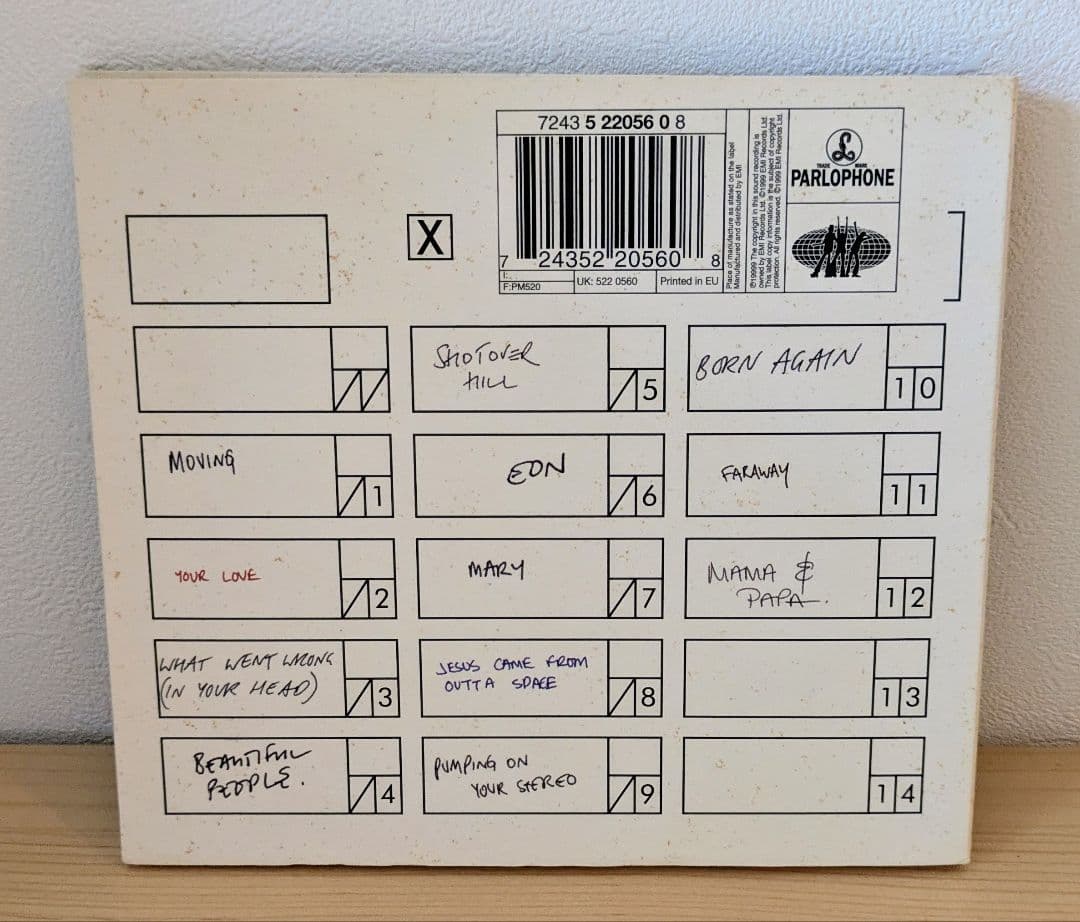 7243 5 22056 0 8
7 24352 20560 8
I:
F:PM520
UK: 522 0560
Printed in EU
Place of manufacture as stated on the label
Manufactured and distributed by EMI
℗1999 The copyright in this sound recording is
owned by EMI Records Ltd. ©1999 EMI Records Ltd.
This label copy information is the subject of copyright
protection. All rights reserved. ©1999 EMI Records Ltd.
£
TRADE MARK
PARLOPHONE
X
MOVING
1
YOUR LOVE
2
WHAT WENT WRONG
(IN YOUR HEAD)
3
BEAUTIFUL
PEOPLE.
4
SHOTOVER
HILL
5
EON
6
MARY
7
JESUS CAME FROM
OUTTA SPACE
8
PUMPING ON
YOUR STEREO
9
BORN AGAIN
10
FARAWAY
11
MAMA &
PAPA.
12
13
14